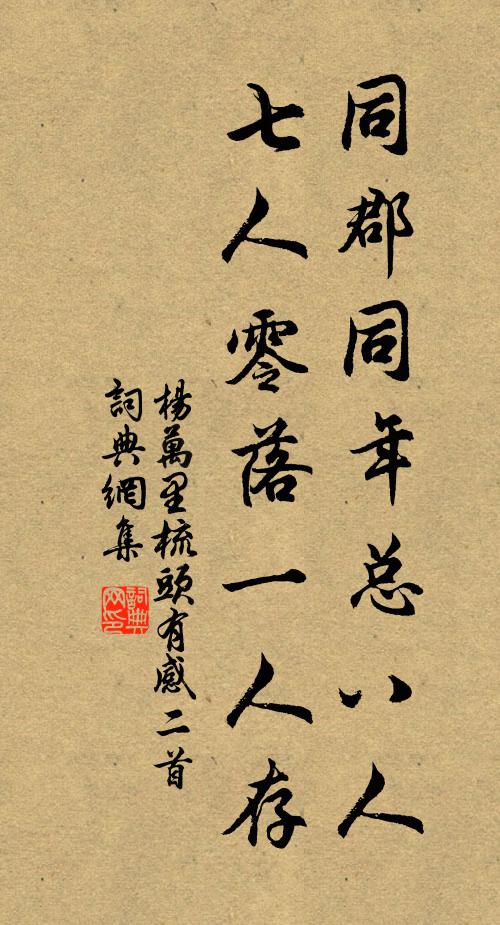 同郡同年总八人
七人零落一人存
楊萬里梳頭有感二首
詞典網集
詞典
网印